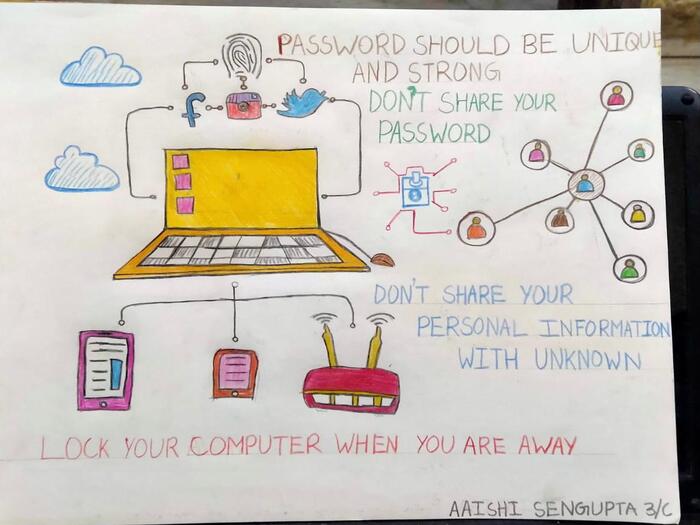 PASSWORD SHOULD BE UNIQUE
AND STRONG
DON'T SHARE YOUR
PASSWORD
f
DON'T SHARE YOUR
PERSONAL INFORMATION
WITH UNKNOWN
LOCK YOUR COMPUTER WHEN YOU ARE AWAY
AAISHI SENGUPTA 3/C